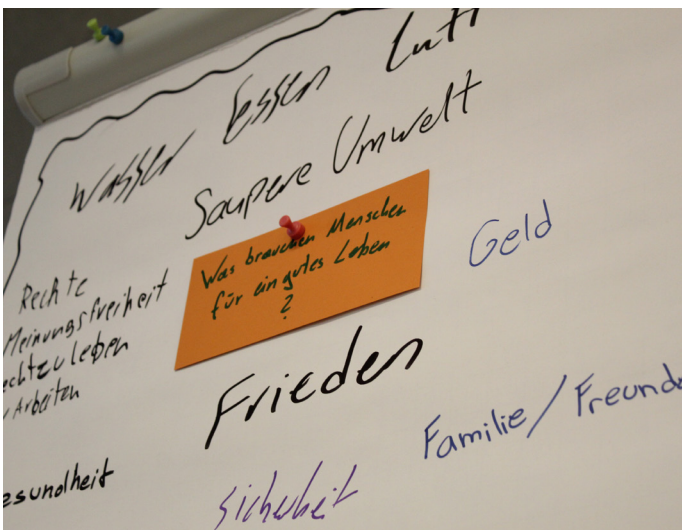 Wasser Essen Luft
Saupere Umwelt
Was brauchen Menschen
für ein gutes Leben
?
Geld
Rechte
Meinungsfreiheit
echt zu leben
Arbeiten
Frieden
Familie / Freunde
esundheit
Sicherheit